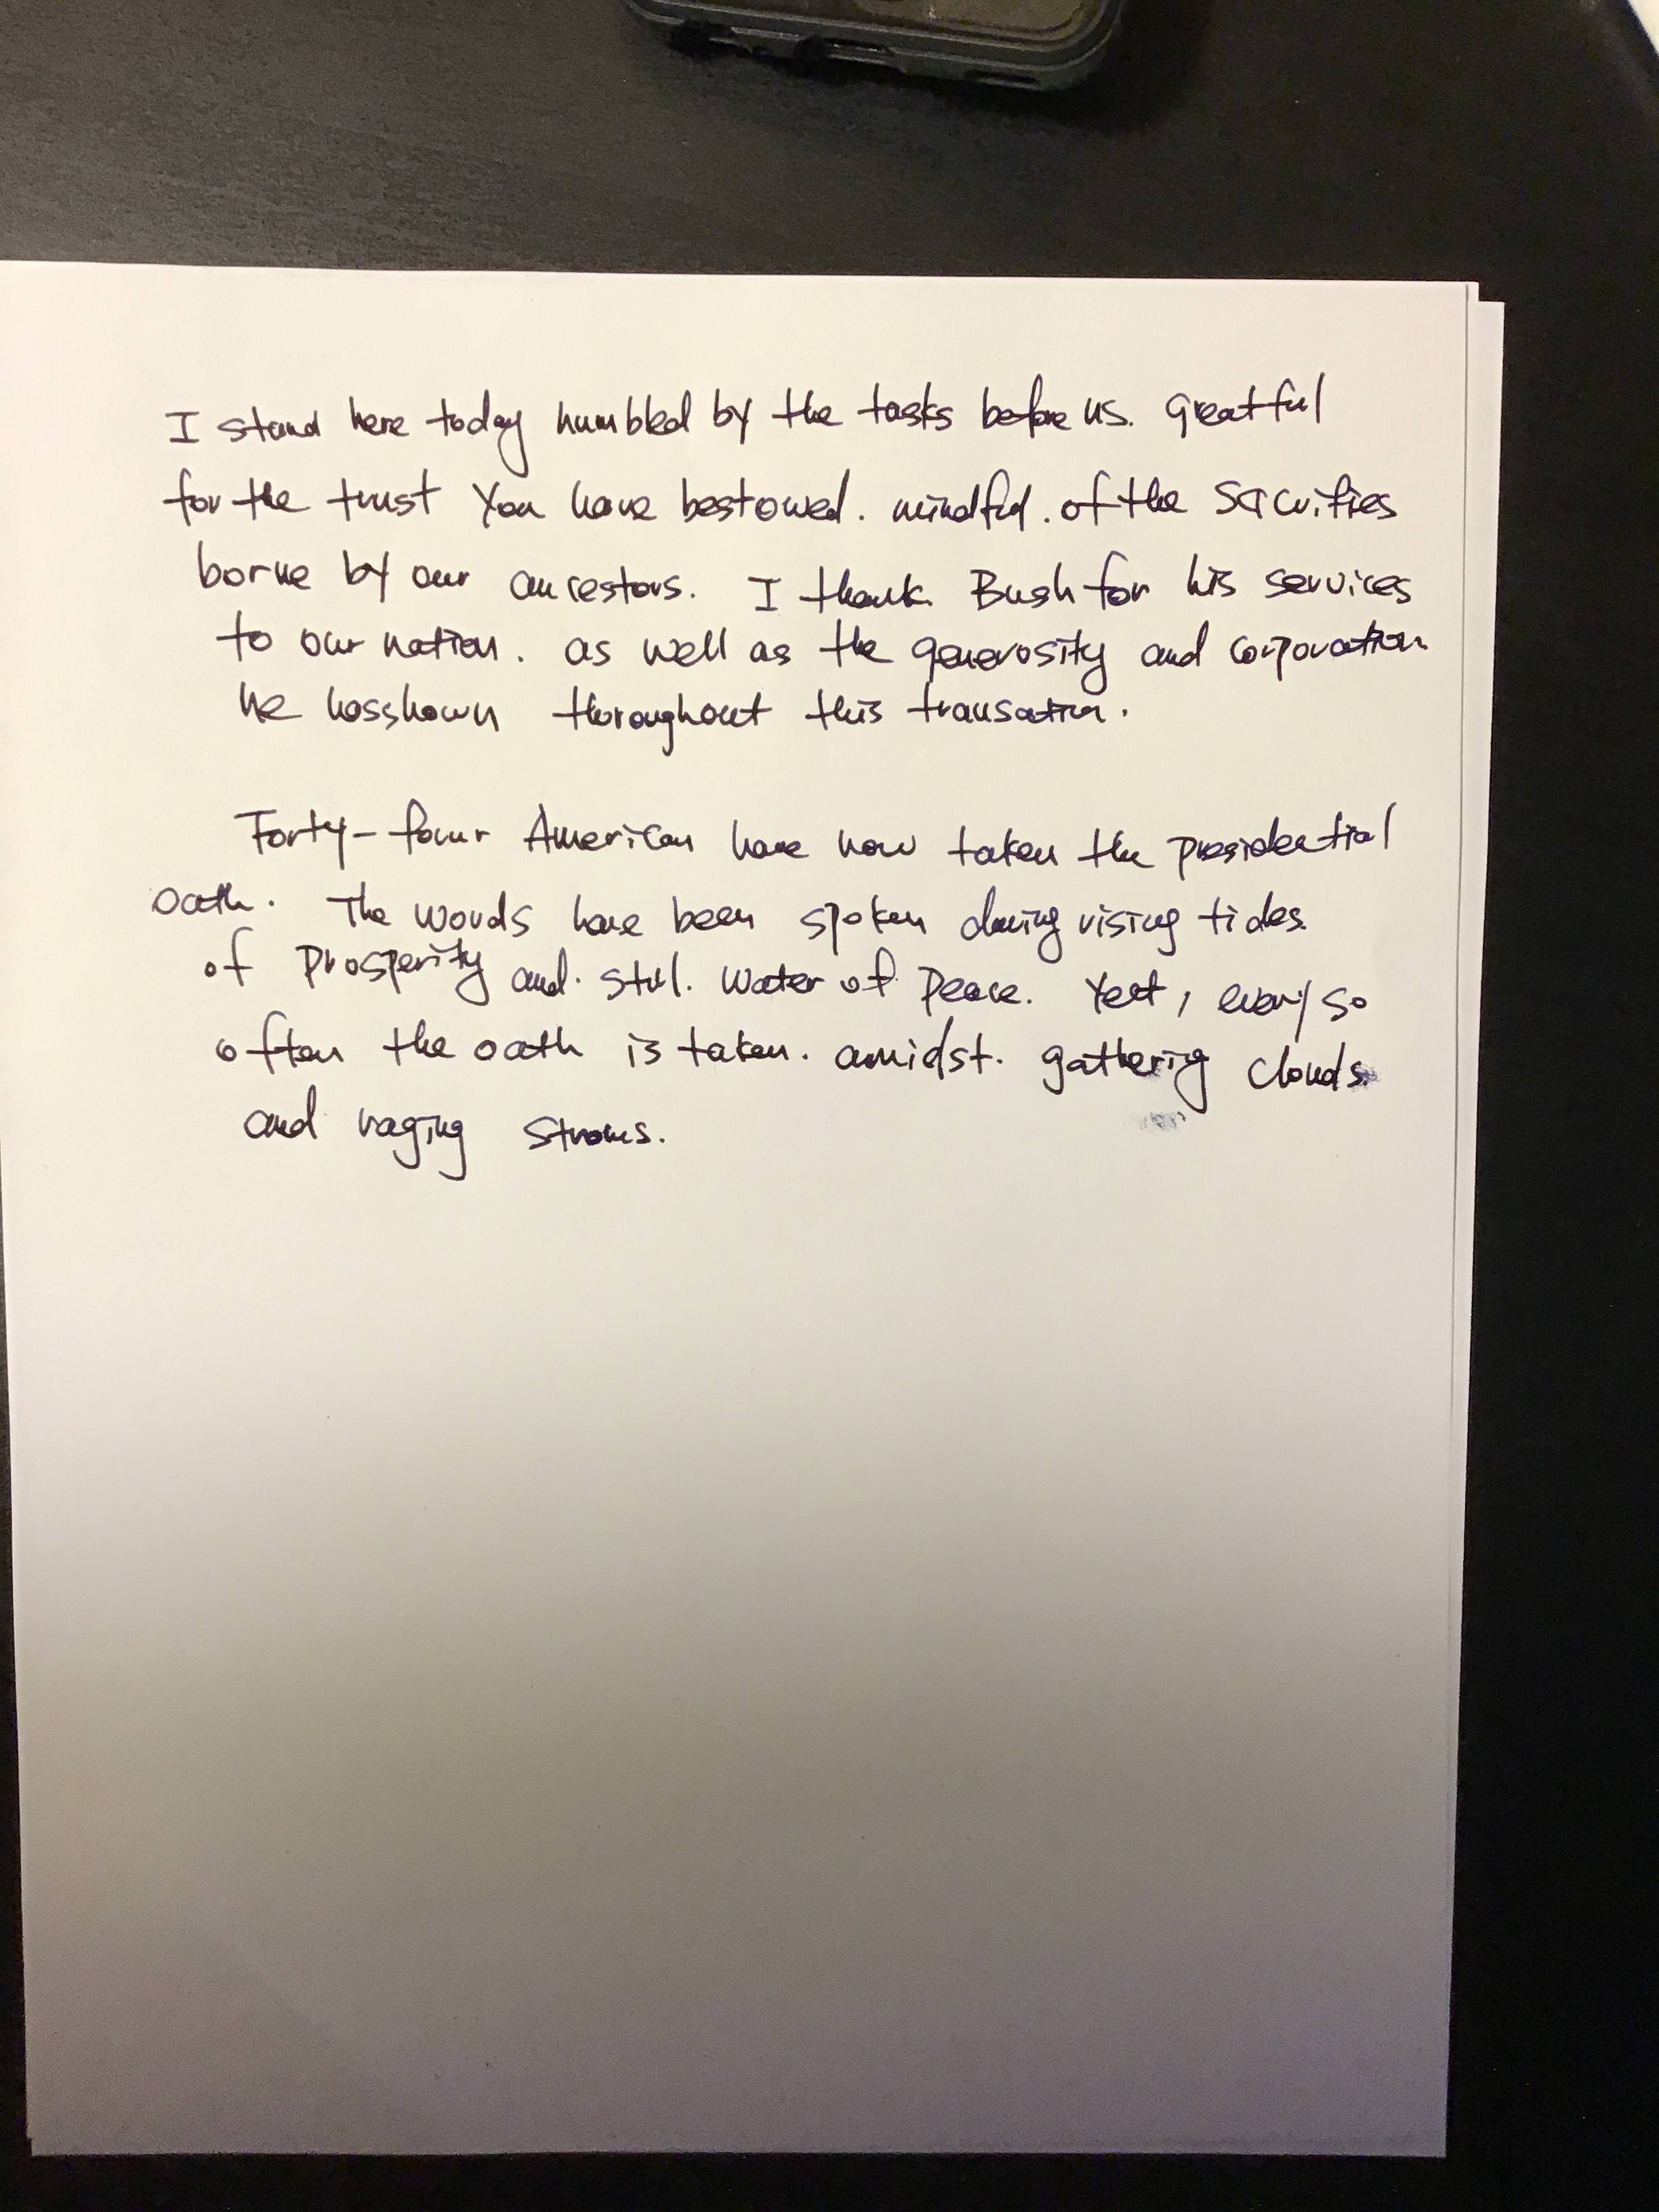 I stand here today humbled by the tasks before us. Greatful
for the trust you have bestowed. mindful. of the sacrifies
borne by our ancestors. I thank Bush for his services
to our nation. as well as the generosity and corporation
he hasshown thoroughout this transation.
Forty-four American have now taken the presidential
oath. The words have been spoken during rising tides.
of prosperity and. still. water of peace. Yet, every so
often the oath is taken. amidst. gathering clouds.
and raging stroms.